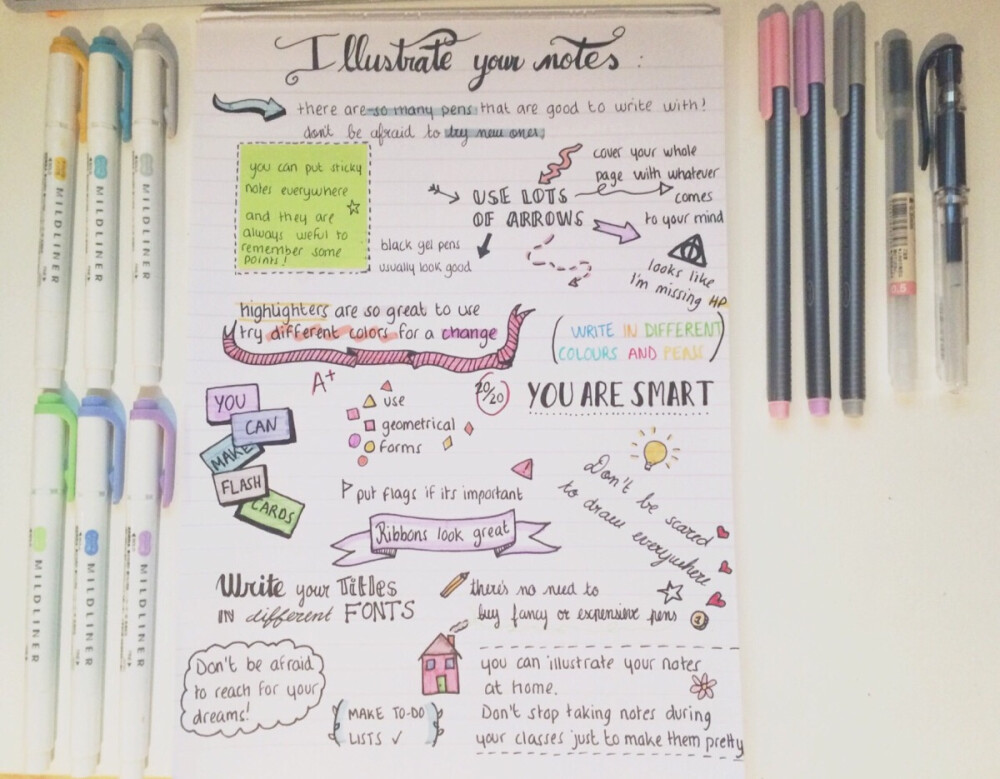 Illustrate your notes :
there are so many pens that are good to write with!
don't be afraid to try new ones;
you can put sticky
notes everywhere
and they are
always useful to
remember some
points!
cover your whole
page with whatever
comes
to your mind
USE LOTS
OF ARROWS
black gel pens
usually look good
looks like
i'm missing HP
highlighters are so great to use
try different colors for a change
(WRITE IN DIFFERENT
COLOURS AND PENS)
A+
20/20
YOU ARE SMART
YOU
CAN
MAKE
FLASH
CARDS
use
geometrical
forms
put flags if its important
Don't be scared
to draw everywhere
Ribbons look great
Write your Titles
IN different FONTS
there's no need to
buy fancy or expensive pens
Don't be afraid
to reach for your
dreams!
MAKE TO-DO
LISTS ✓
you can illustrate your notes
at home.
Don't stop taking notes during
your classes just to make them pretty
MILDLINER
MILDLINER
MILDLINER
MILDLINER
MILDLINER
MILDLINER
0.5